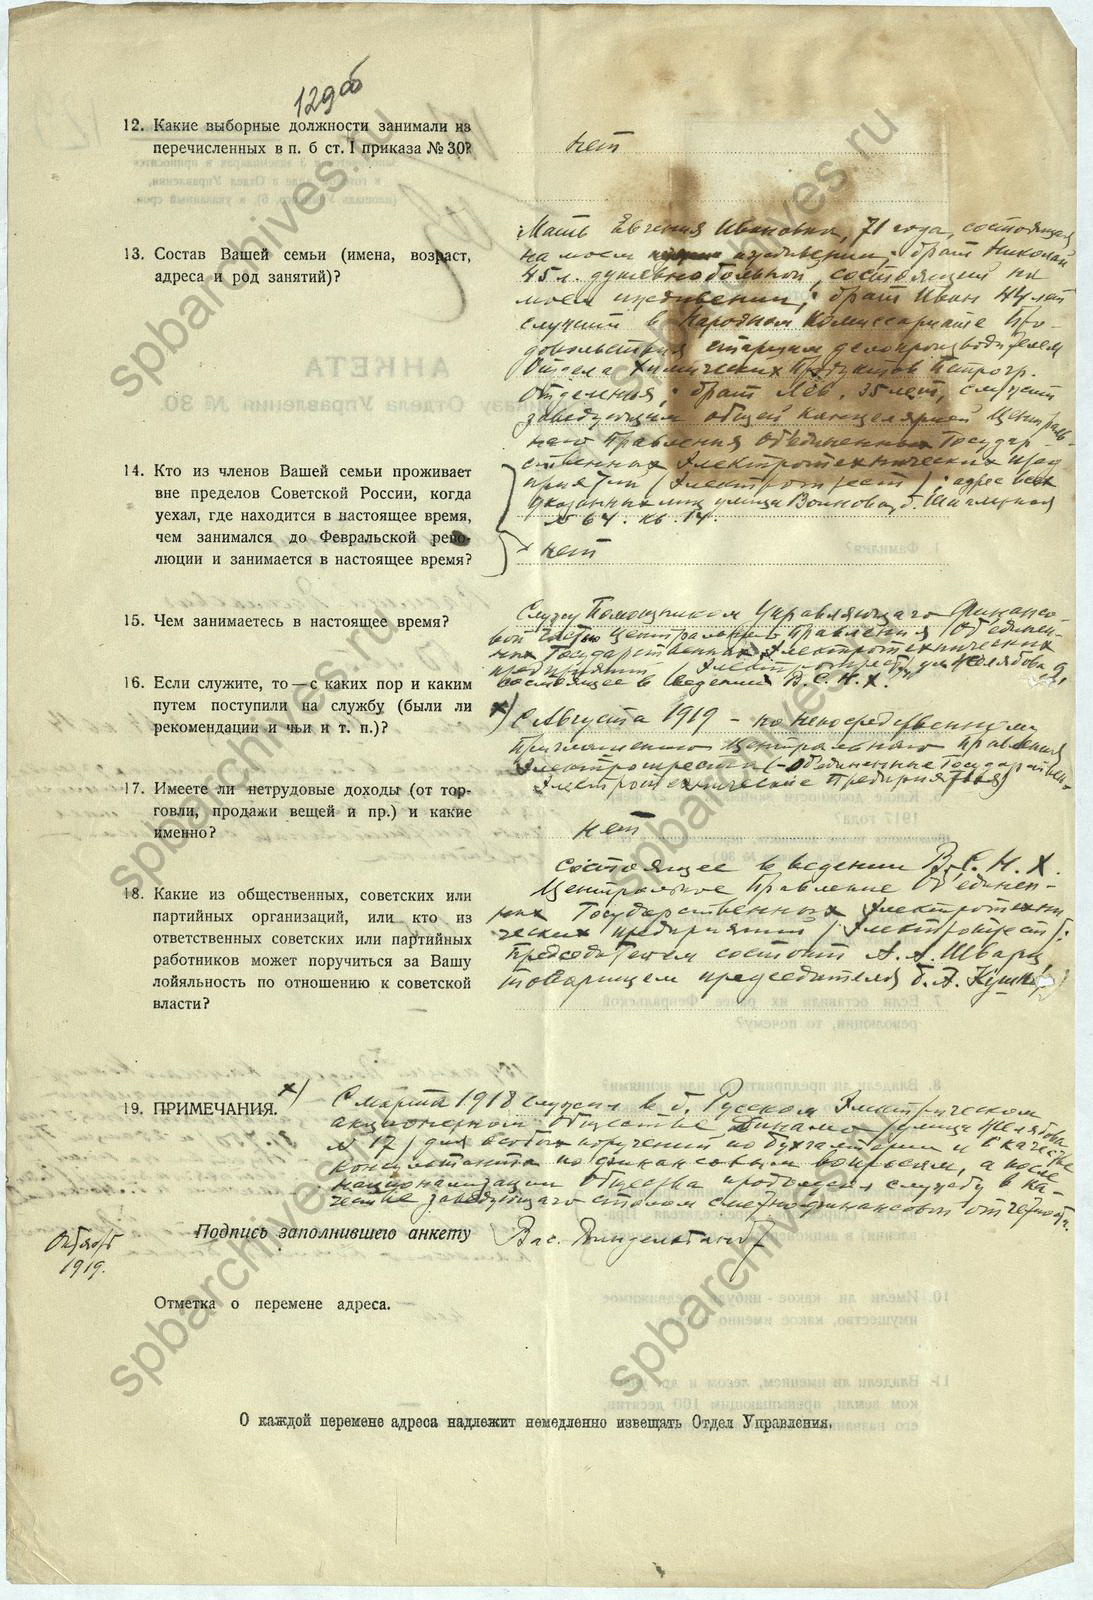 129об
12. Какие выборные должности занимали из
перечисленных в п. б ст. I приказа № 30?
нет
13. Состав Вашей семьи (имена, возраст,
адреса и род занятий)?
Мать Евгения Ивановна, 71 года, состоящая
на моем иждивении; брат Николай
45 л. душевнобольной, состоящий на
моем иждивении; брат Иван 44 лет
служит в Народном Комиссариате Про-
довольствия старшим делопроизводителем
Отдела Химических Продуктов Петрогр.
Отделения; брат Лев, 35 лет, служит
заведующим общей канцелярией Централь-
наго Правления Объединенных Государ-
ственных Электротехнических пред
приятий (Электротрест); адрес всех
указанных лиц улица Воинова, б. Шпалерная
№ 64. кв. 14.
14. Кто из членов Вашей семьи проживает
вне пределов Советской России, когда
уехал, где находится в настоящее время,
чем занимался до Февральской рево-
люции и занимается в настоящее время?
нет
15. Чем занимаетесь в настоящее время?
Служу Помощником Управляющаго Финансо-
вой Частью Центральнаго Правления Объединен-
ных Государственных Электротехнических
предприятий (Электротрест) ул. Желябова 9,
состоящее в ведении В.С.Н.Х.
16. Если служите, то — с каких пор и каким
путем поступили на службу (были ли
рекомендации и чьи и т. п.)?
х) С Августа 1919 - по непосредственному
приглашению Центральнаго Правления
Электротреста (- Объединенные Государствен-
Электротехнические Предприятия)
17. Имеете ли нетрудовые доходы (от тор-
говли, продажи вещей и пр.) и какие
именно?
нет
18. Какие из общественных, советских или
партийных организаций, или кто из
ответственных советских или партийных
работников может поручиться за Вашу
лойяльность по отношению к советской
власти?
Состоящее в ведении В.С.Н.Х.
Центральное Правление Объединен-
ных Государственных Электротехни
ческих предприятий (Электротрест):
Председателем состоит А. А. Шварц
товарищем председателя
19. ПРИМЕЧАНИЯ. х)
С марта 1918 служил в б. Русском Электрическом
акционерном Обществе Динамо (улица Желябова
№ 17) для особых поручений по бухгалтерии и в качестве
консультанта по финансовым вопросам, а после
национализации Общества продолжал службу в ка-
честве заведующаго столом сметно-финансовой отчетности.
Октябрь
1919.
Подпись заполнившего анкету
Вас.
Отметка о перемене адреса.
О каждой перемене адреса надлежит немедленно извещать Отдел Управления.
spbarchives.ru
spbarchives.ru
spbarchives.ru
spbarchives.ru
spbarchives.ru
spbarchives.ru